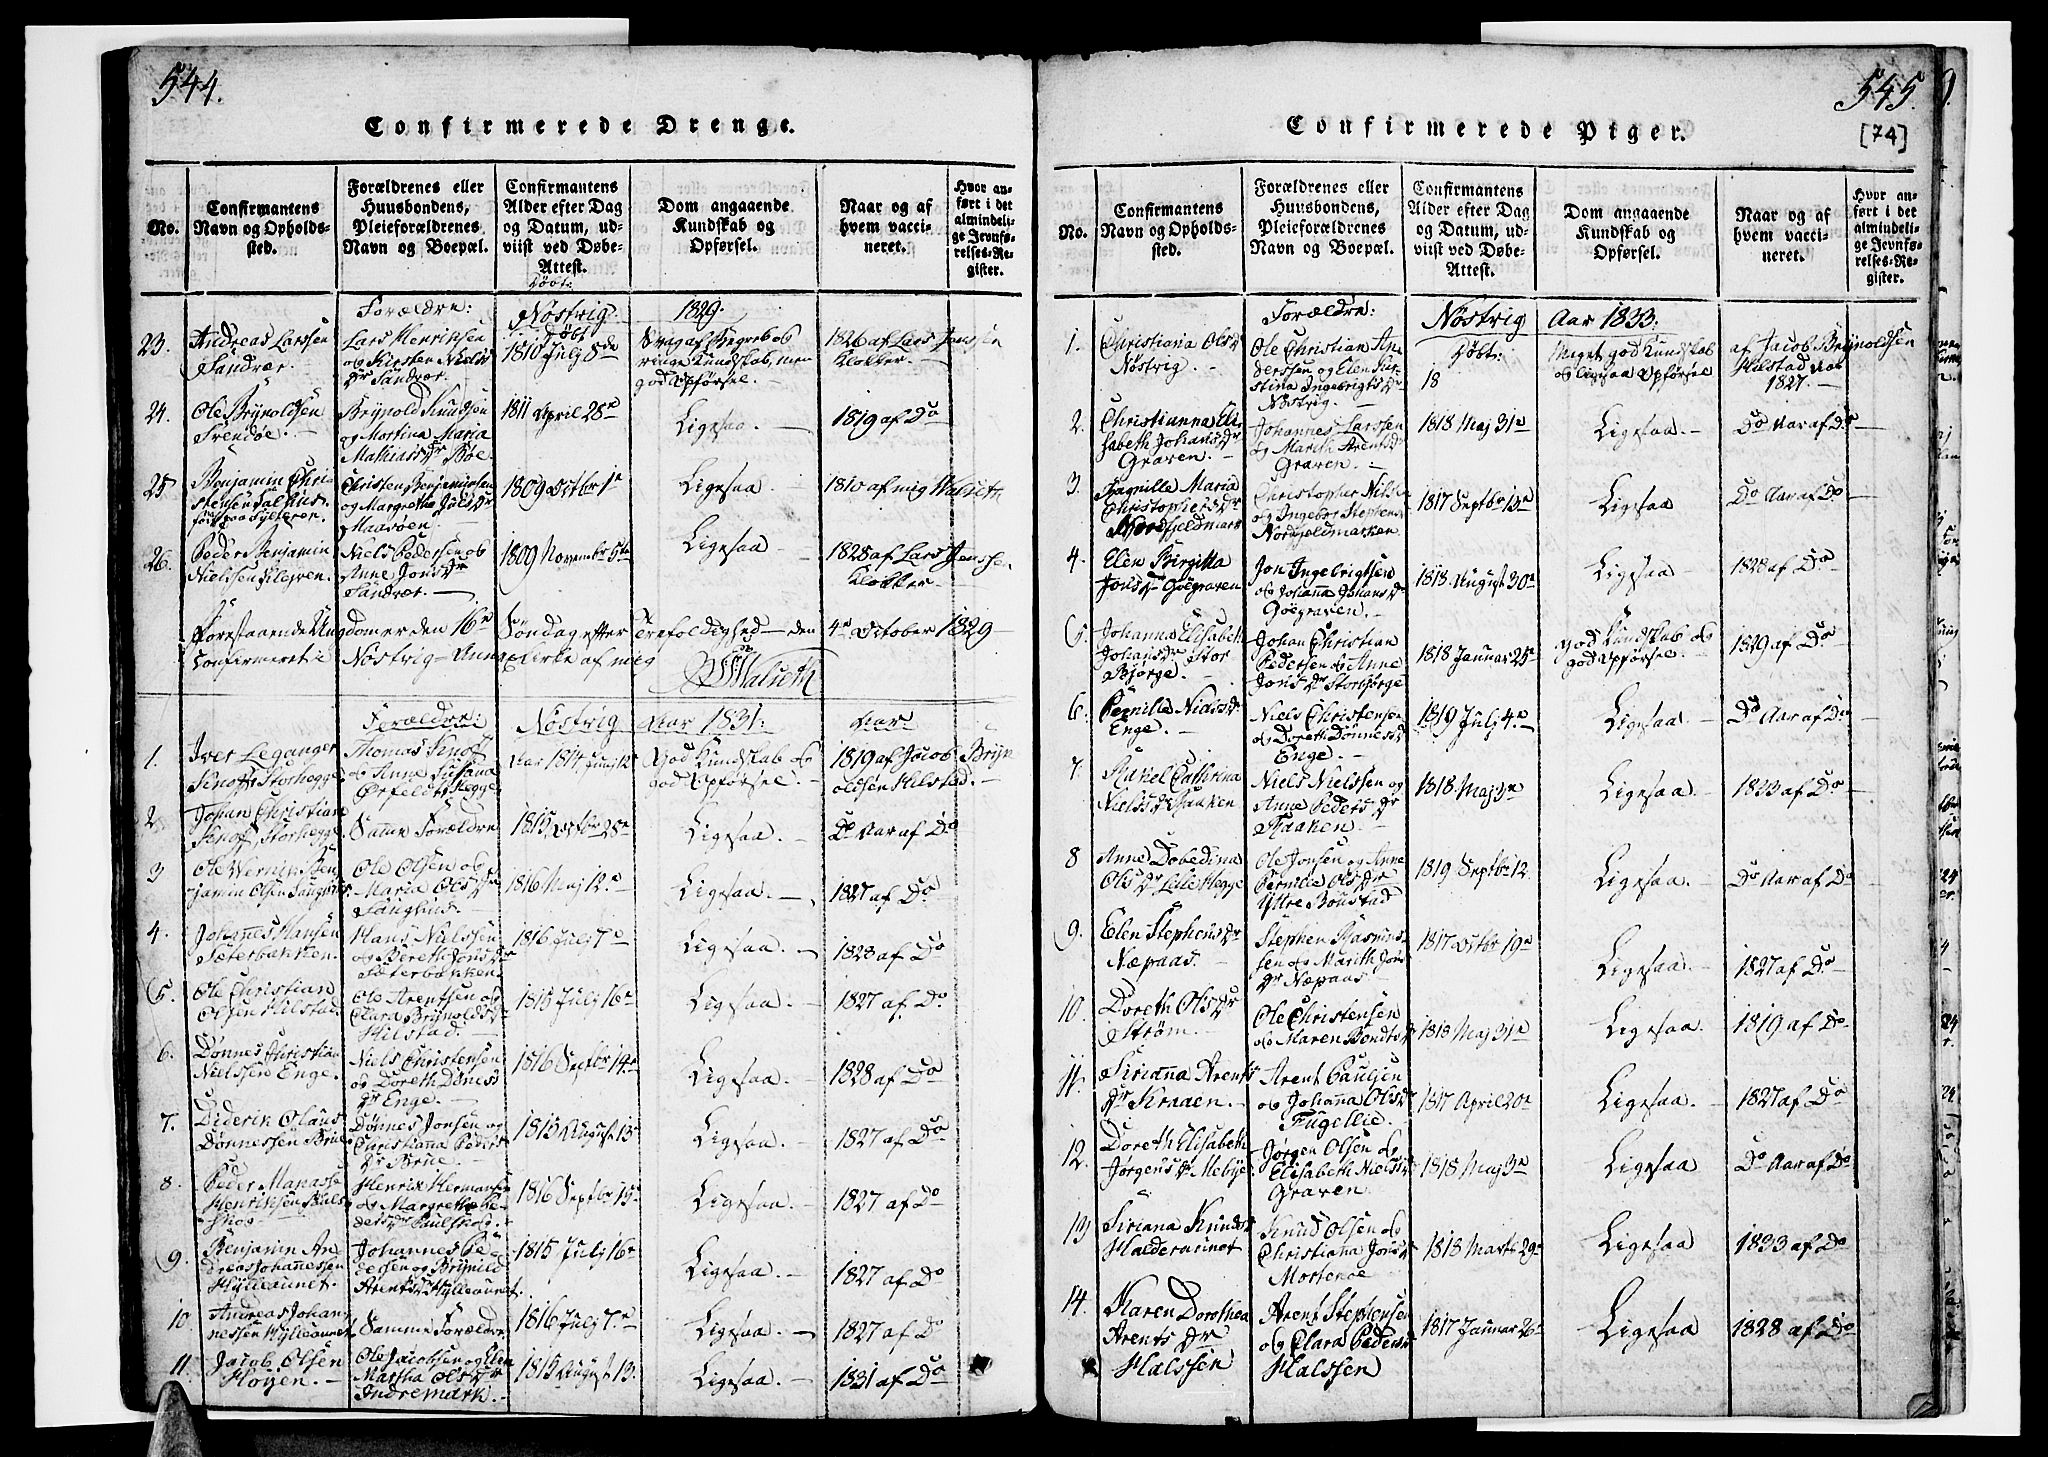 544.
Confirmerede Drenge.
No.
Confirmantens
Navn og Opholds-
sted.
Forældrenes eller
Huusbondens,
Pleieforældrenes
Navn og Boepæl.
Confirmantens
Alder efter Dag
og Datum, ud-
viist ved Døbe-
Attest.
Dom angaaende
Kundskab og
Opførsel.
Naar og af
hvem vacci-
neret.
Hvor an-
ført i det
almindeli-
ge Jevnfø-
relses-Re-
gister.
Forældre: Nöstvig 1829.
23. Andreas Larssen
Sandvær
Lars Henriksen
og Kirsten Niels
Dr Sandvær
Döbt
1810 Julj 8de
Svag af Begreb og
ringe Kundskab, men
god Opførsel.
1826 af Lars Jenssen
Klokker.
24. Ole Brynoldsen
Trendöe.
Brynold Knudsen
og Mortina Maria
Mathias Dr Böe.
1811 April 28e
Ligesaa
1819 af Do
25 Benjamin Chri
stensen
Christen Benjaminsen
og Margrethe Juls Dr
Maasöen.
1809 Octbr 1e
Ligesaa
1810 af mig Walseth
26. Peder Benjamin
Nielssen Klegven.
Niels Pedersen og
Anne Jons Dr
Sandvær.
1809 Novembr 5te
Ligesaa
1828 af Lars Jenssen
Klokker.
Forestaaende Ungdom er den 16e Söndag efter Trefoldighed den 4e October 1829
Confirmeret i Nöstvig Annex Kirke af mig
Walseth
Forældre: Nöstvig Aar 1831. Aar
1. Iver Leganger
Knoff Storhegge
Thomas Knoff
og Anna Susana
Orfeldt Hegge
Aar 1814 Junj 12
God Kundskab og
god Opförsel.
1819 af Jacob Bryn
oldsen Hilstad.
2 Johan Christian
Knoff, Storhegge
Samme Forældre
1815 Octbr 25e
Ligesaa
Do Aar af Do
3 Ole Wernin Ben
jamin Olsen Saughuus
Ole Olsen og
Marie Ols Dr
Saughus.
1816 Maj 12.e
Ligesaa
1827 af Do
4. Johannes Hansen
Sæterbakken.
Hans Nielssen
og Bereth Jons Dr
Sæterbakken.
1816 Julj 7e
Ligesaa
1828 af Do
5. Ole Christian
Olsen Hilstad
Ole Arentsen og
Clara Brynolds Dr
Hilstad.
1815 Julj 16e
Ligesaa
1827 af Do
6. Dönnes Christian
Nielssen Enge.
Niels Christensen
og Doreth Dönnes
Dr Enge.
1816 Septbr 14e
Ligesaa
1828 af Do
7. Diderik Olaus
Dönnessen Brue
Dönnes Jonsen og
Christianna Peders
Dr Brue.
1815 August 13e
Ligesaa
1827 af Do
8. Peder Manasse
Henriksen Pauls
skog
Henrik Hermansen
og Margrethe Pe-
ders Dr Paulskog.
1816 Septbr 15e
Ligesaa
1827 af Do
9. Benjamin An
dreas Johannessen
Hylleaunet.
Johannes Pe
dersen og Brynild
Arents Dr Hylleaunet.
1815 Julj 16e
Ligesaa
1827 af Do
10. Andreas Johan
nessen Hylleaunet
Samme Forældre
1816 Julj 7e
Ligesaa
1827 af Do
11. Jacob Olsen
Hoyen.
Ole Jacobsen og Elen
Martha Ols Dr
Indremark.
1815 August 13.
Ligesaa
1831 af Do
545.
[74]
Confirmerede Piger.
No.
Confirmantens
Navn og Opholds-
sted.
Forældrenes eller
Huusbondens,
Pleieforældrenes
Navn og Boepæl.
Confirmantens
Alder efter Dag
og Datum, ud-
viist ved Døbe-
Attest.
Dom angaaende
Kundskab og
Opførsel.
Naar og af
hvem vacci-
neret.
Hvor an-
ført i det
almindeli-
ge Jevnfø-
relses-Re-
gister.
Forældre: Nöstvig Aar 1833.
1. Christiana Ols Dr
Nöstvig.
Ole Christian An
derssen og Elen Kir-
stina Ingebrigts Dr
Nöstvig.
Döbt:
18
Meget god Kundskab
og ligesaa Opförsel
af Jacob Brynoldsen
Hilstad Aar
1827.
2. Christianna Eli
sabeth Johans Dr
Graven.
Johannes Larssen
og Marith Arents Dr
Graven.
1818 Maj 31e
Ligesaa
Do Aar af Do
3. Pagnille Maria
Christophers Dr
Nordfjeldmark
Christopher Nils
og Ingebor Stephens
Nordfjeldmarken
1817 Septbr 13e
Ligesaa
Do Aar af Do
4. Elen Birgitta
Jons Dr Goegraven
Jon Ingebrigtsen
og Johanna Johans Dr
Goegraven.
1818. August 30e
Ligesaa
1828 af Do
5. Johanna Elisabeth
Johans Dr Stor
Bjørge.
Johan Christian
Pedersen og Anne
Jons Dr Storbjørge
1818 Januar 25e
god Kundskab og
god Opførsel.
1829 af Do
6. Pernille Niels Dr
Enge.
Niels Christensen
og Doreth Dönnes Dr
Enge.
1819 Julj 4.e
Ligesaa
Do Aar af Do
7. Rakel Cathrina
Niels Dr Haaken
Niels Nielssen og
Anne Peders Dr
Haaken.
1818 Maj 3e
Ligesaa
1833 af Do
8 Anne Dobedina
Ols Dr Lille Hegge
Ole Jonsen og Anne
Pernilie Ols Dr
Yttre Boustad
1819 Septbr 12.
Ligesaa
Do Aar af Do
9. Elen Stephens Dr
Næpaas.
Stephen Rasmus-
sen og Marith Jons
Dr Næpaas
1817 Octbr 19e
Ligesaa
1827 af Do
10. Doreth Ols Dr
Ström.
Ole Christensen
og Maren Bendts Dr
1818 Maj 31e
Ligesaa
1819 af Do
11. Siriana Arents
Dr Kraaen.
Arent Paulsen
og Johanna Ols Dr
Fugellie.
1817 April 20e
Ligesaa
1827 af Do
12. Doreth Elisabeth
Jørgens Dr Mebye
Jørgen Olsen og
Elisabeth Niels Dr
Graven.
1818 Maj 3e
Ligesaa
Do Aar af Do
13 Siriana Knuds Dr
Halderaunet
Knud Olsen og
Christiana Jons Dr
Mortenöe
1818 Marts 29e
Ligesaa
1833 af Do
14. Karen Dorothea
Arents Dr
Halssen
Arent Stephensen
og Clara Peders Dr
Halssen
1817 Januar 26e
Ligesaa
1828 af Do